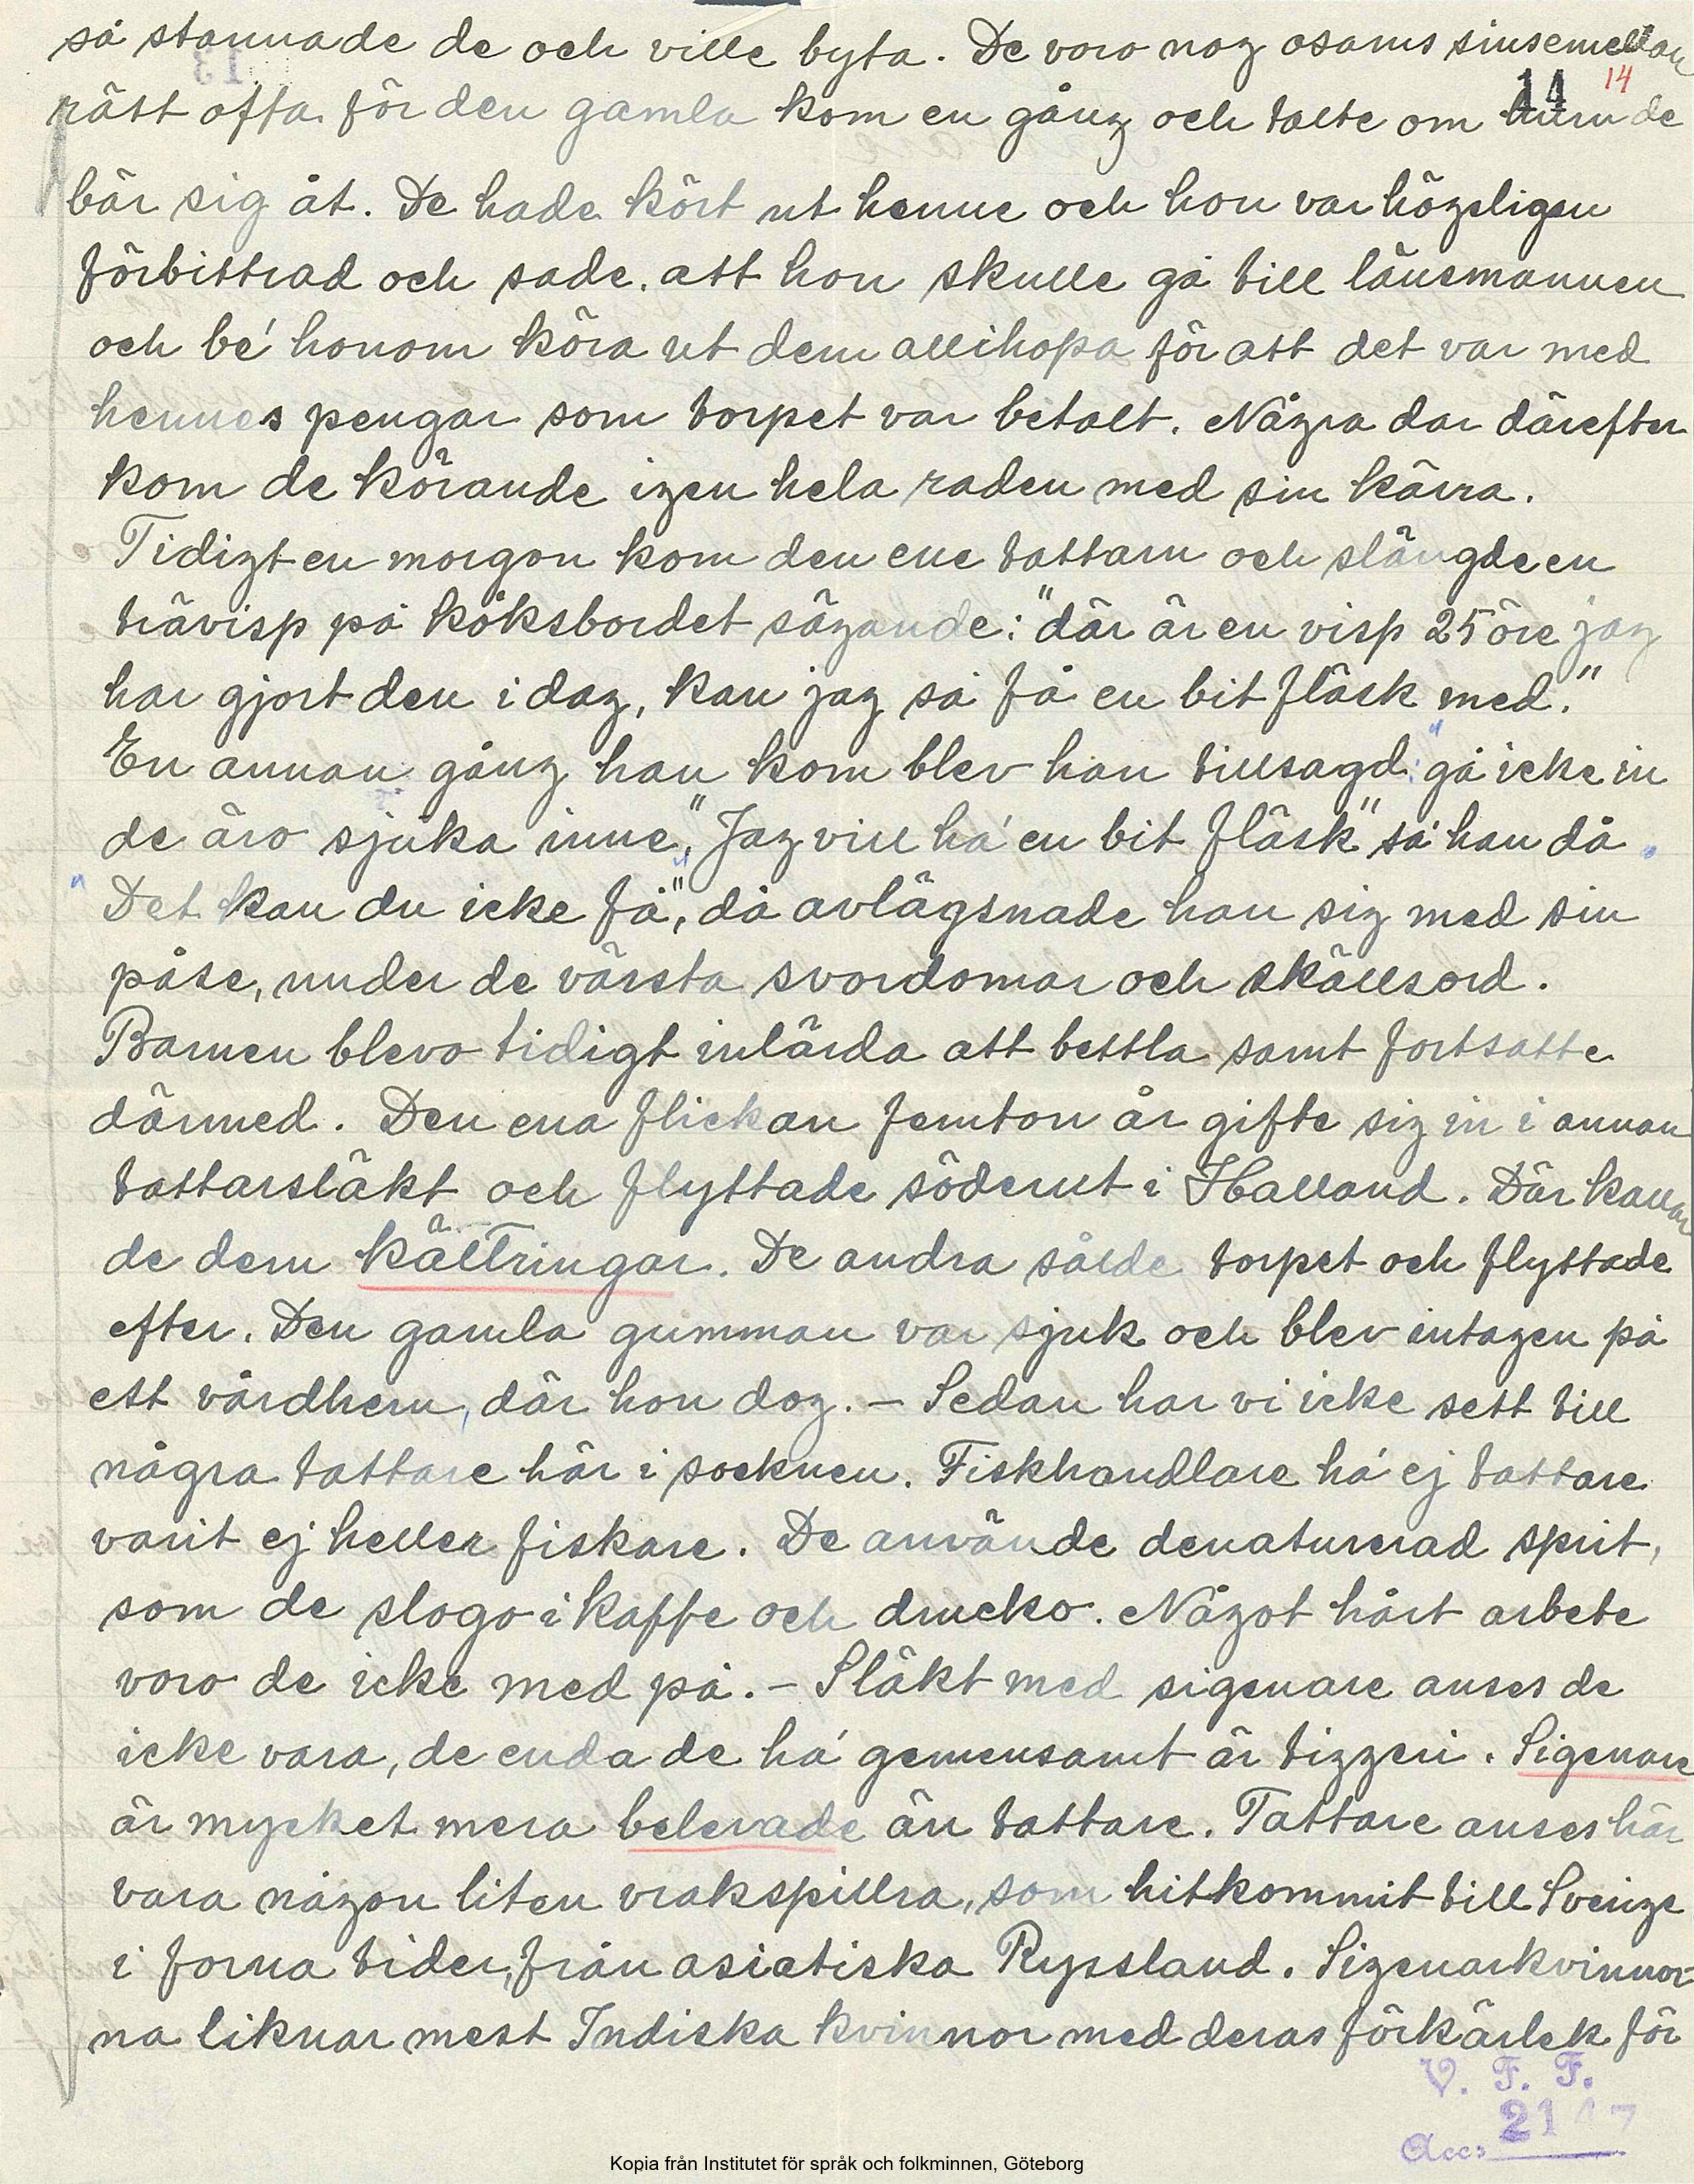 så stannade de och ville byta. De voro nog osams sinsemellan
14 14
rätt ofta för den gamla kom en gång och talte om hum de
bär sig åt. De hade kört ut henne och hon var högeligen
förbittrad och sade. att hon skulle gå till länsmannen
och be' honom köra ut dem allihopa för att det var med
hennes pengar som torpet var betalt. Några dar därefter
kom de körande igen hela raden med sin kärra.
Tidigt en morgon kom den ene tattarn och slängde en
trävisp på köksbordet sägande: "där är en visp 25 öre jag
har gjort den i dag, kan jag så få en bit fläsk med."
En annan gång han kom blev han tillsagd: "gå icke in
de äro sjuka inne", "Jag vill ha' en bit fläsk" sa' han då.
"Det kan du icke få", då avlägsnade han sig med sin
påse, under de värsta svordomar och skällsord.
Barnen blevo tidigt inlärda att bettla samt fortsatte
därmed. Den ena flickan femton år gifte sig in i annan
tattarsläkt och flyttade söderut i Halland. Där kallar
de dem kältringar. De andra sålde torpet och flyttade
efter. Den gamla gumman var sjuk och blev intagen på
ett vårdhem, där hon dog. – Sedan har vi icke sett till
några tattare här i socknen. Fiskhandlare ha' ej tattare
varit ej heller fiskare. De använde denaturerad sprit,
som de slogo i kaffe och drucko. Något hårt arbete
voro de icke med på. – Släkt med sigenare anses de
icke vara, de enda de ha' gemensamt är tiggeri. Sigenare
är mycket mera belevade än tattare. Tattare anses här
vara någon liten vrakspillra, som hitkommit till Sverige
i forna tider, från asiatiska Ryssland. Sigenarkvinnor-
na liknar mest Indiska kvinnor med deras förkärlek för
V. F. F.
Acc: 2147
Kopia från Institutet för språk och folkminnen, Göteborg